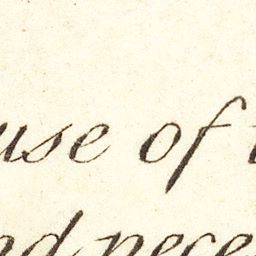 use of t
nd nece